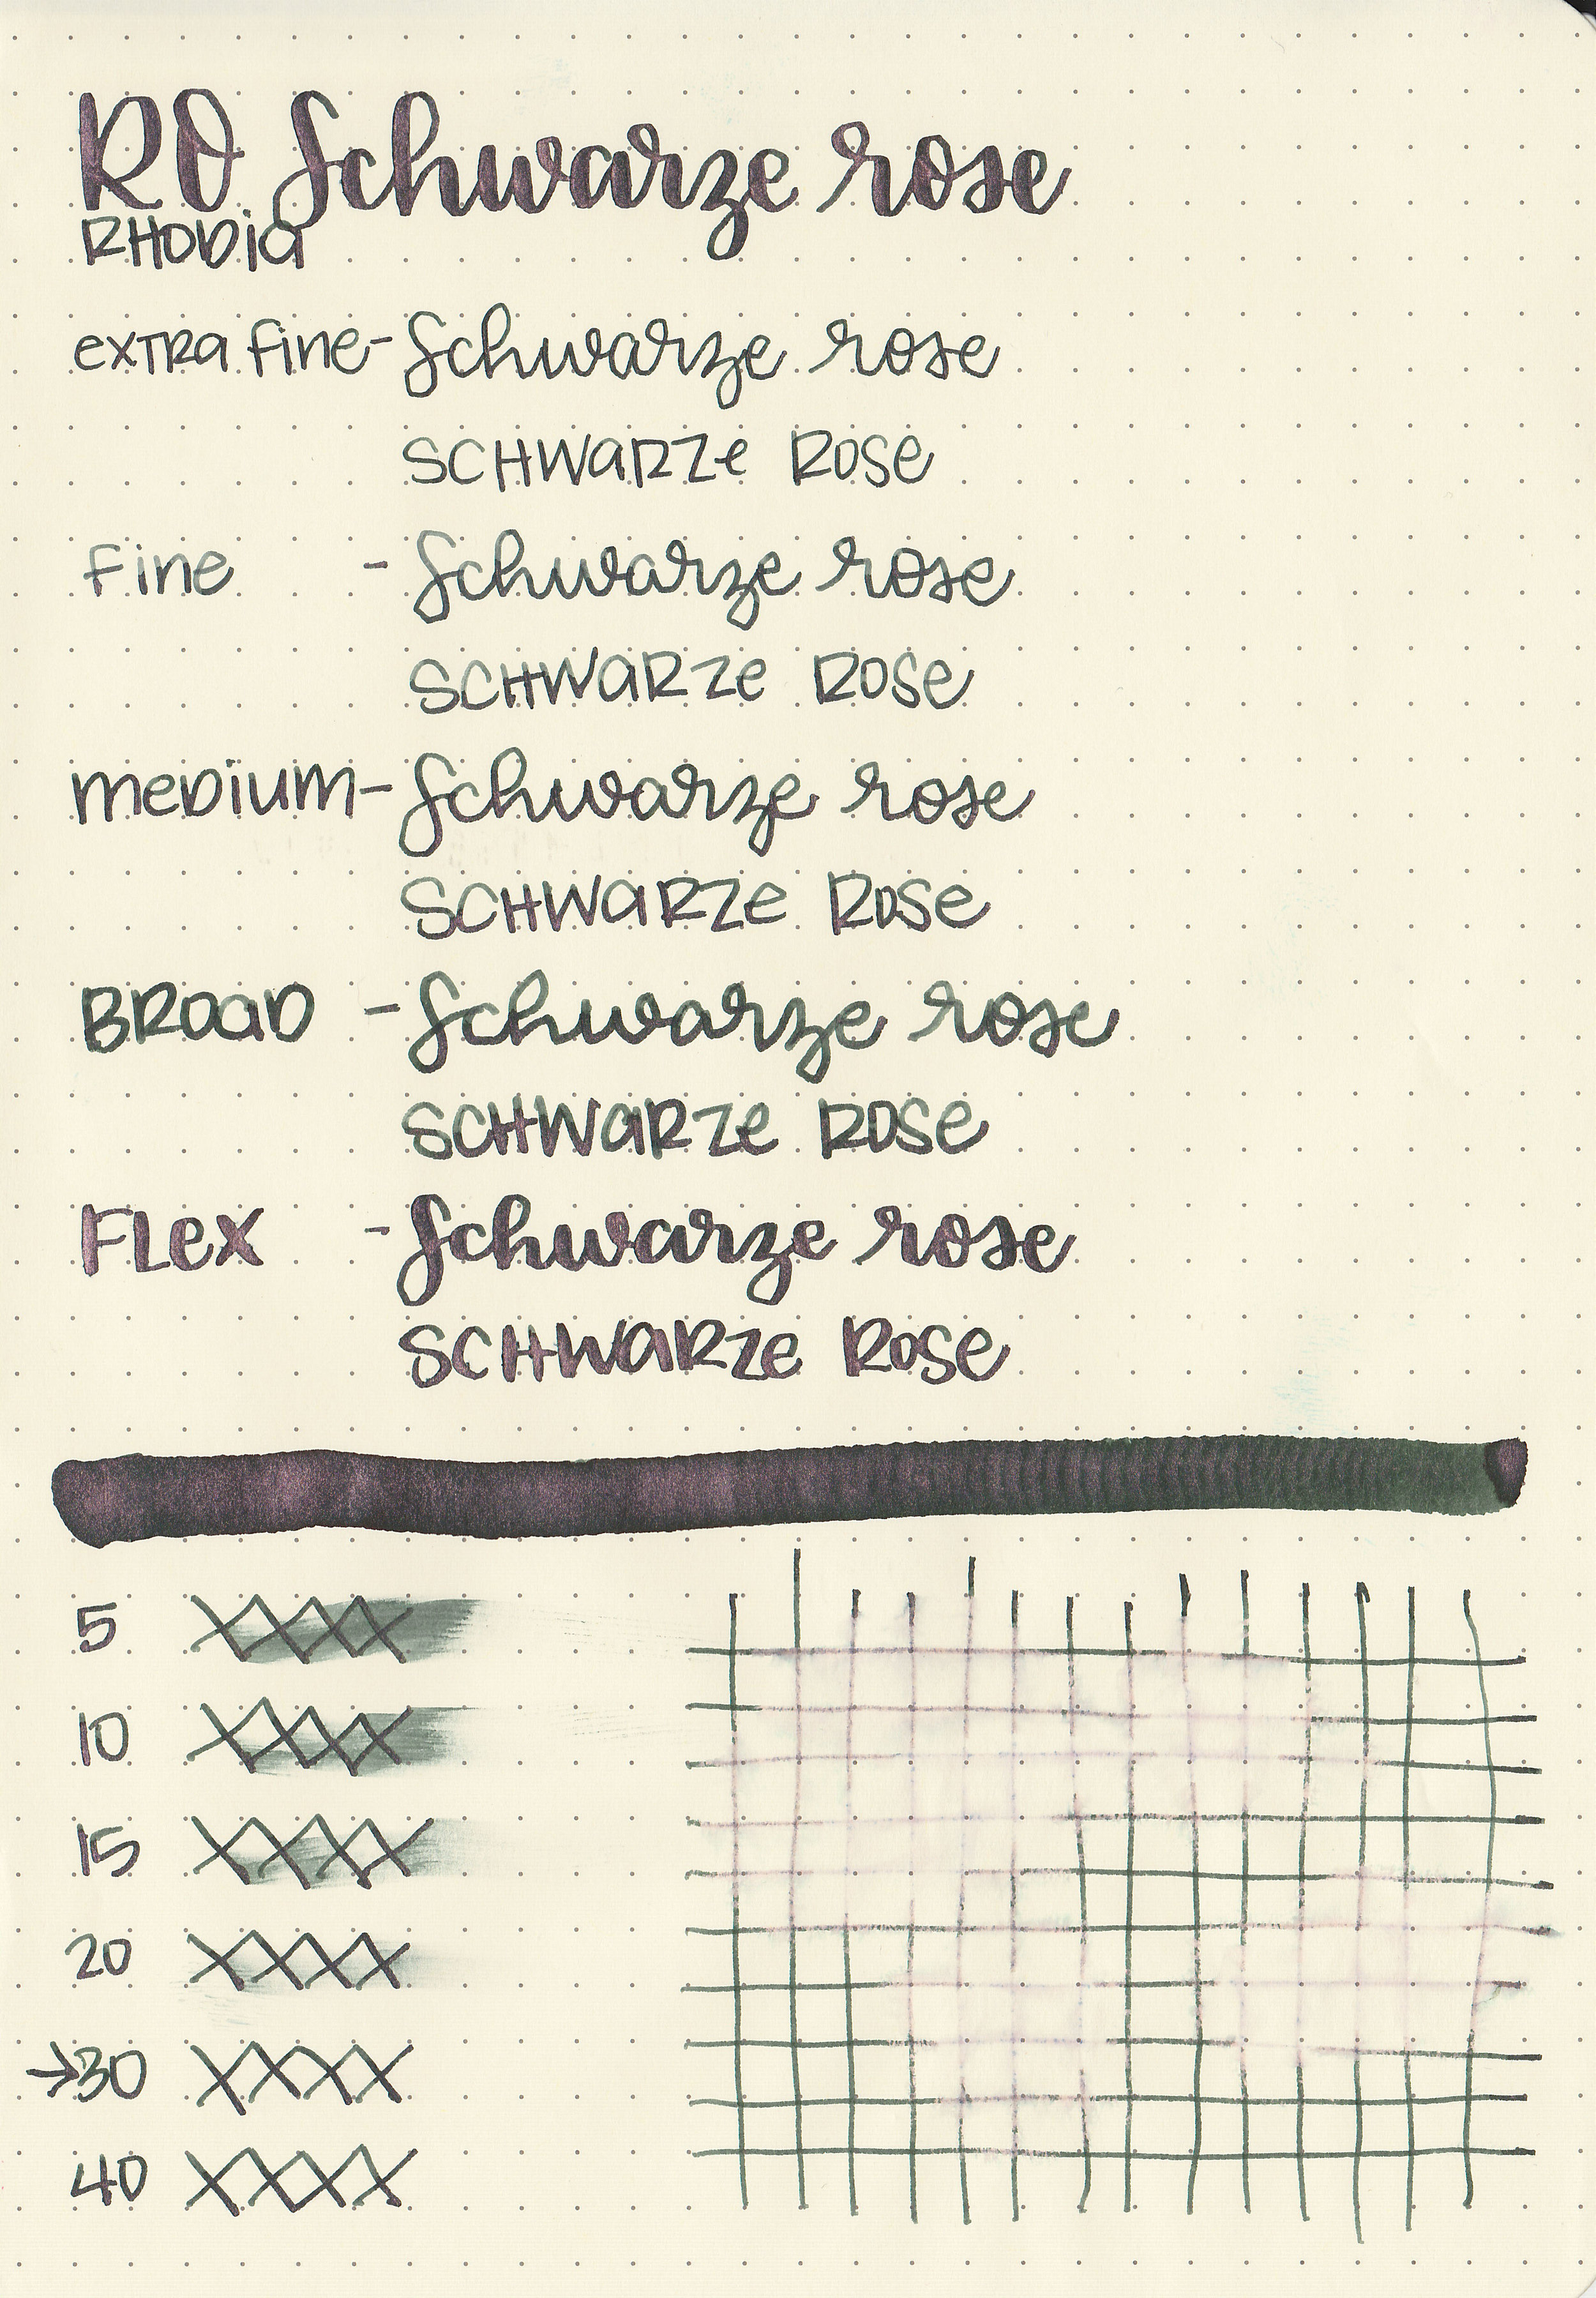 RO Schwarze rose
RHODia
extra fine - Schwarze rose
SCHWaRZe ROSe
fine - Schwarze rose
SCHWaRZe ROSe
meDium - Schwarze rose
SCHWaRZe ROSe
BRoaD - Schwarze rose
SCHWaRZe ROSe
FLex - Schwarze rose
SCHWaRZe ROSe
5 XXXX
10 XXXX
15 XXXX
20 XXXX
→30 XXXX
40 XXXX